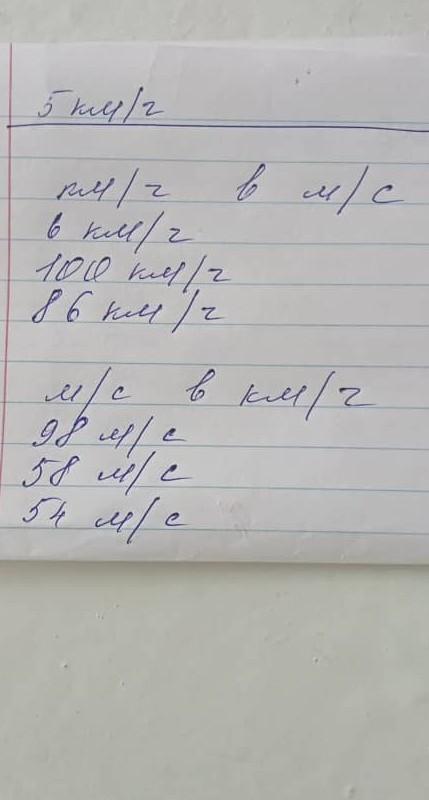 5 км/ч
км/ч в м/с
6 км/ч
100 км/ч
86 км/ч
м/с в км/ч
98 м/с
58 м/с
54 м/с